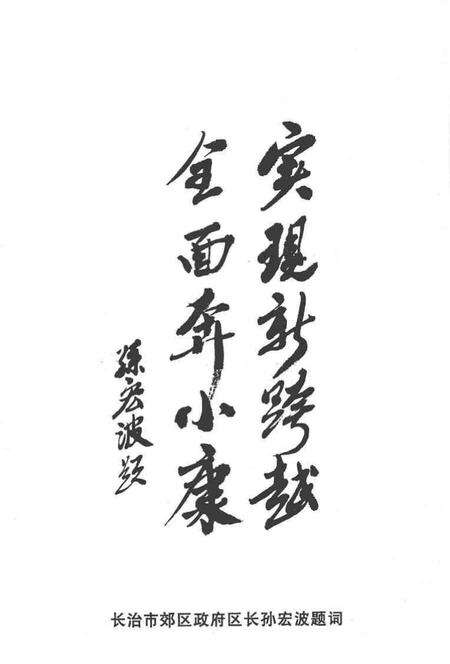 实现新跨越
全面奔小康
孙宏波题
长治市郊区政府区长孙宏波题词